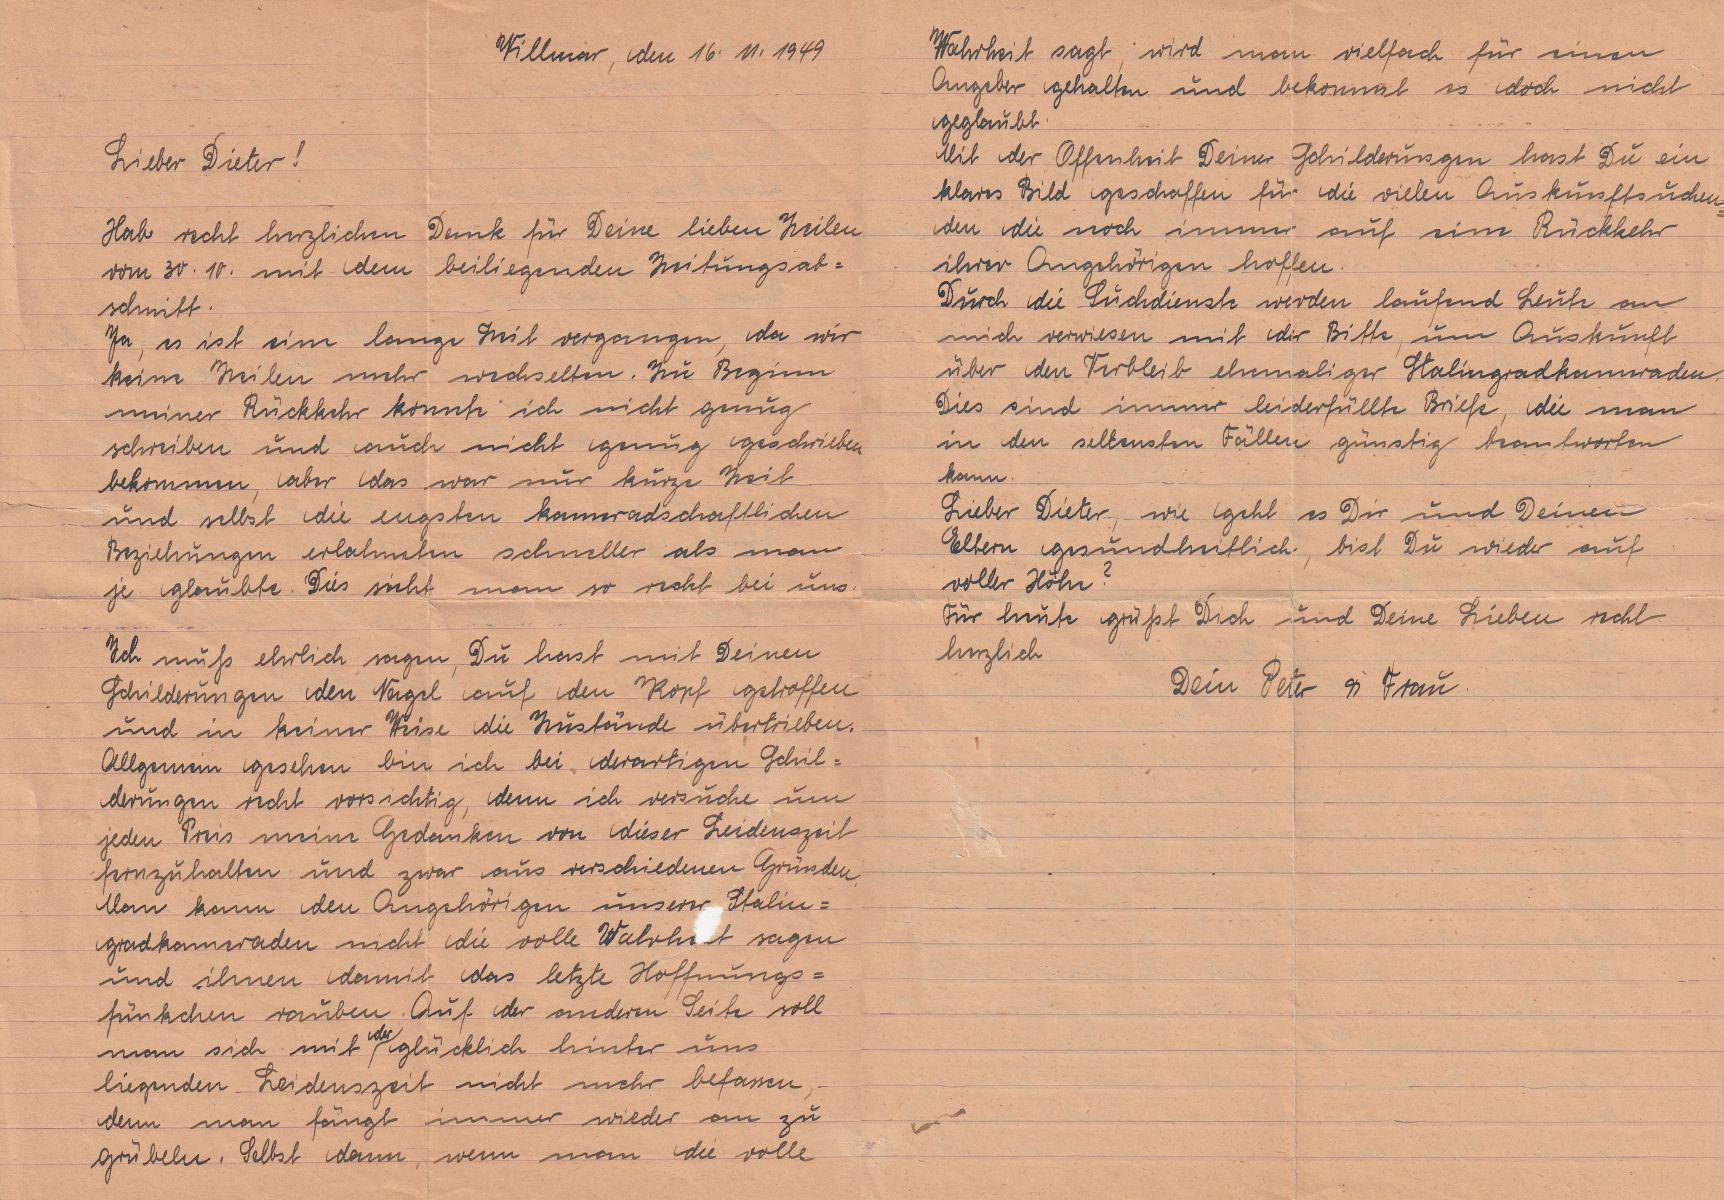 Villmar, den 16. 11. 1949
Lieber Dieter!
Hab recht herzlichen Dank für Deine lieben Zeilen
vom 30. 10. mit dem beiliegenden Zeitungsab=
schnitt.
Ja, es ist eine lange Zeit vergangen, da wir
keine Zeilen mehr wechselten. Zu Beginn
meiner Rückkehr konnte ich nicht genug
schreiben und auch nicht genug geschrieben
bekommen, aber das war nur kurze Zeit
und selbst die engsten kameradschaftlichen
Beziehungen erlahmten schneller als man
je glaubte. Dies sieht man so recht bei uns.
Ich muß ehrlich sagen, Du hast mit Deinen
Schilderungen den Nagel auf den Kopf getroffen
und in keiner Weise die Zustände übertrieben.
Allgemein gesehen bin ich bei derartigen Schil=
derungen recht vorsichtig, denn ich versuche um
jeden Preis meine Gedanken von dieser Leidenszeit
fernzuhalten und zwar aus verschiedenen Gründen.
Man kann den Angehörigen unserer Stalin=
gradkameraden nicht die volle Wahrheit sagen
und ihnen damit das letzte Hoffnungs=
fünkchen rauben. Auf der anderen Seite soll
man sich mit der glücklich hinter uns
liegenden Leidenszeit nicht mehr befassen,
denn man fängt immer wieder an zu
grübeln. Selbst dann, wenn man die volle
Wahrheit sagt, wird man vielfach für einen
Angeber gehalten und bekommt es doch nicht
geglaubt.
Mit der Offenheit Deiner Schilderungen hast Du ein
klares Bild geschaffen für die vielen Auskunftsuchen=
den die noch immer auf eine Rückkehr
ihrer Angehörigen hoffen.
Durch die Suchdienste werden laufend Leute an
mich verwiesen mit der Bitte, um Auskunft
über den Verbleib ehemaliger Stalingradkameraden.
Dies sind immer leiderfüllte Briefe, die man
in den seltensten Fällen günstig beantworten
kann.
Lieber Dieter, wie geht es Dir und Deinen
Eltern gesundheitlich, bist Du wieder auf
voller Höhe?
Für heute grüßt Dich und Deine Lieben recht
herzlich
Dein Peter & Frau.